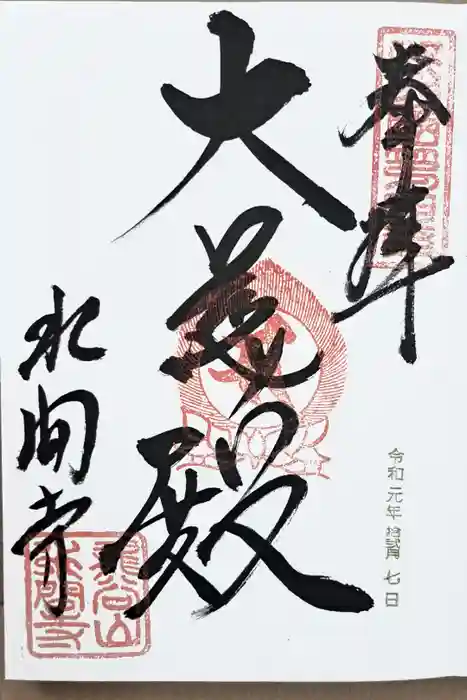 奉拝
大慈殿
水間寺
令和元年 拾弐月 七日
龍谷山
水間寺